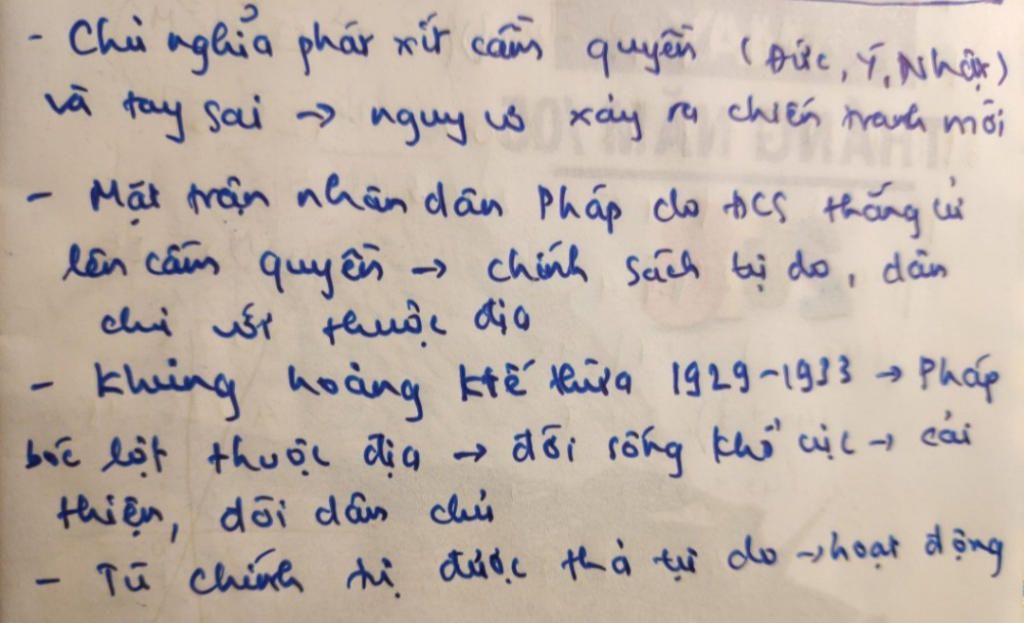 - Chủ nghĩa phát xít cầm quyền (Đức, Ý, Nhật)
và tay sai → nguy cơ xảy ra chiến tranh mới
- Mặt trận nhân dân Pháp do ĐCS thắng cử
lên cầm quyền → chính sách tự do, dân
chủ với thuộc địa
- Khủng hoảng ktế thừa 1929-1933 → Pháp
bóc lột thuộc địa → đời sống khổ cực → cải
thiện, đòi dân chủ
- Tù chính trị được thả tự do → hoạt động